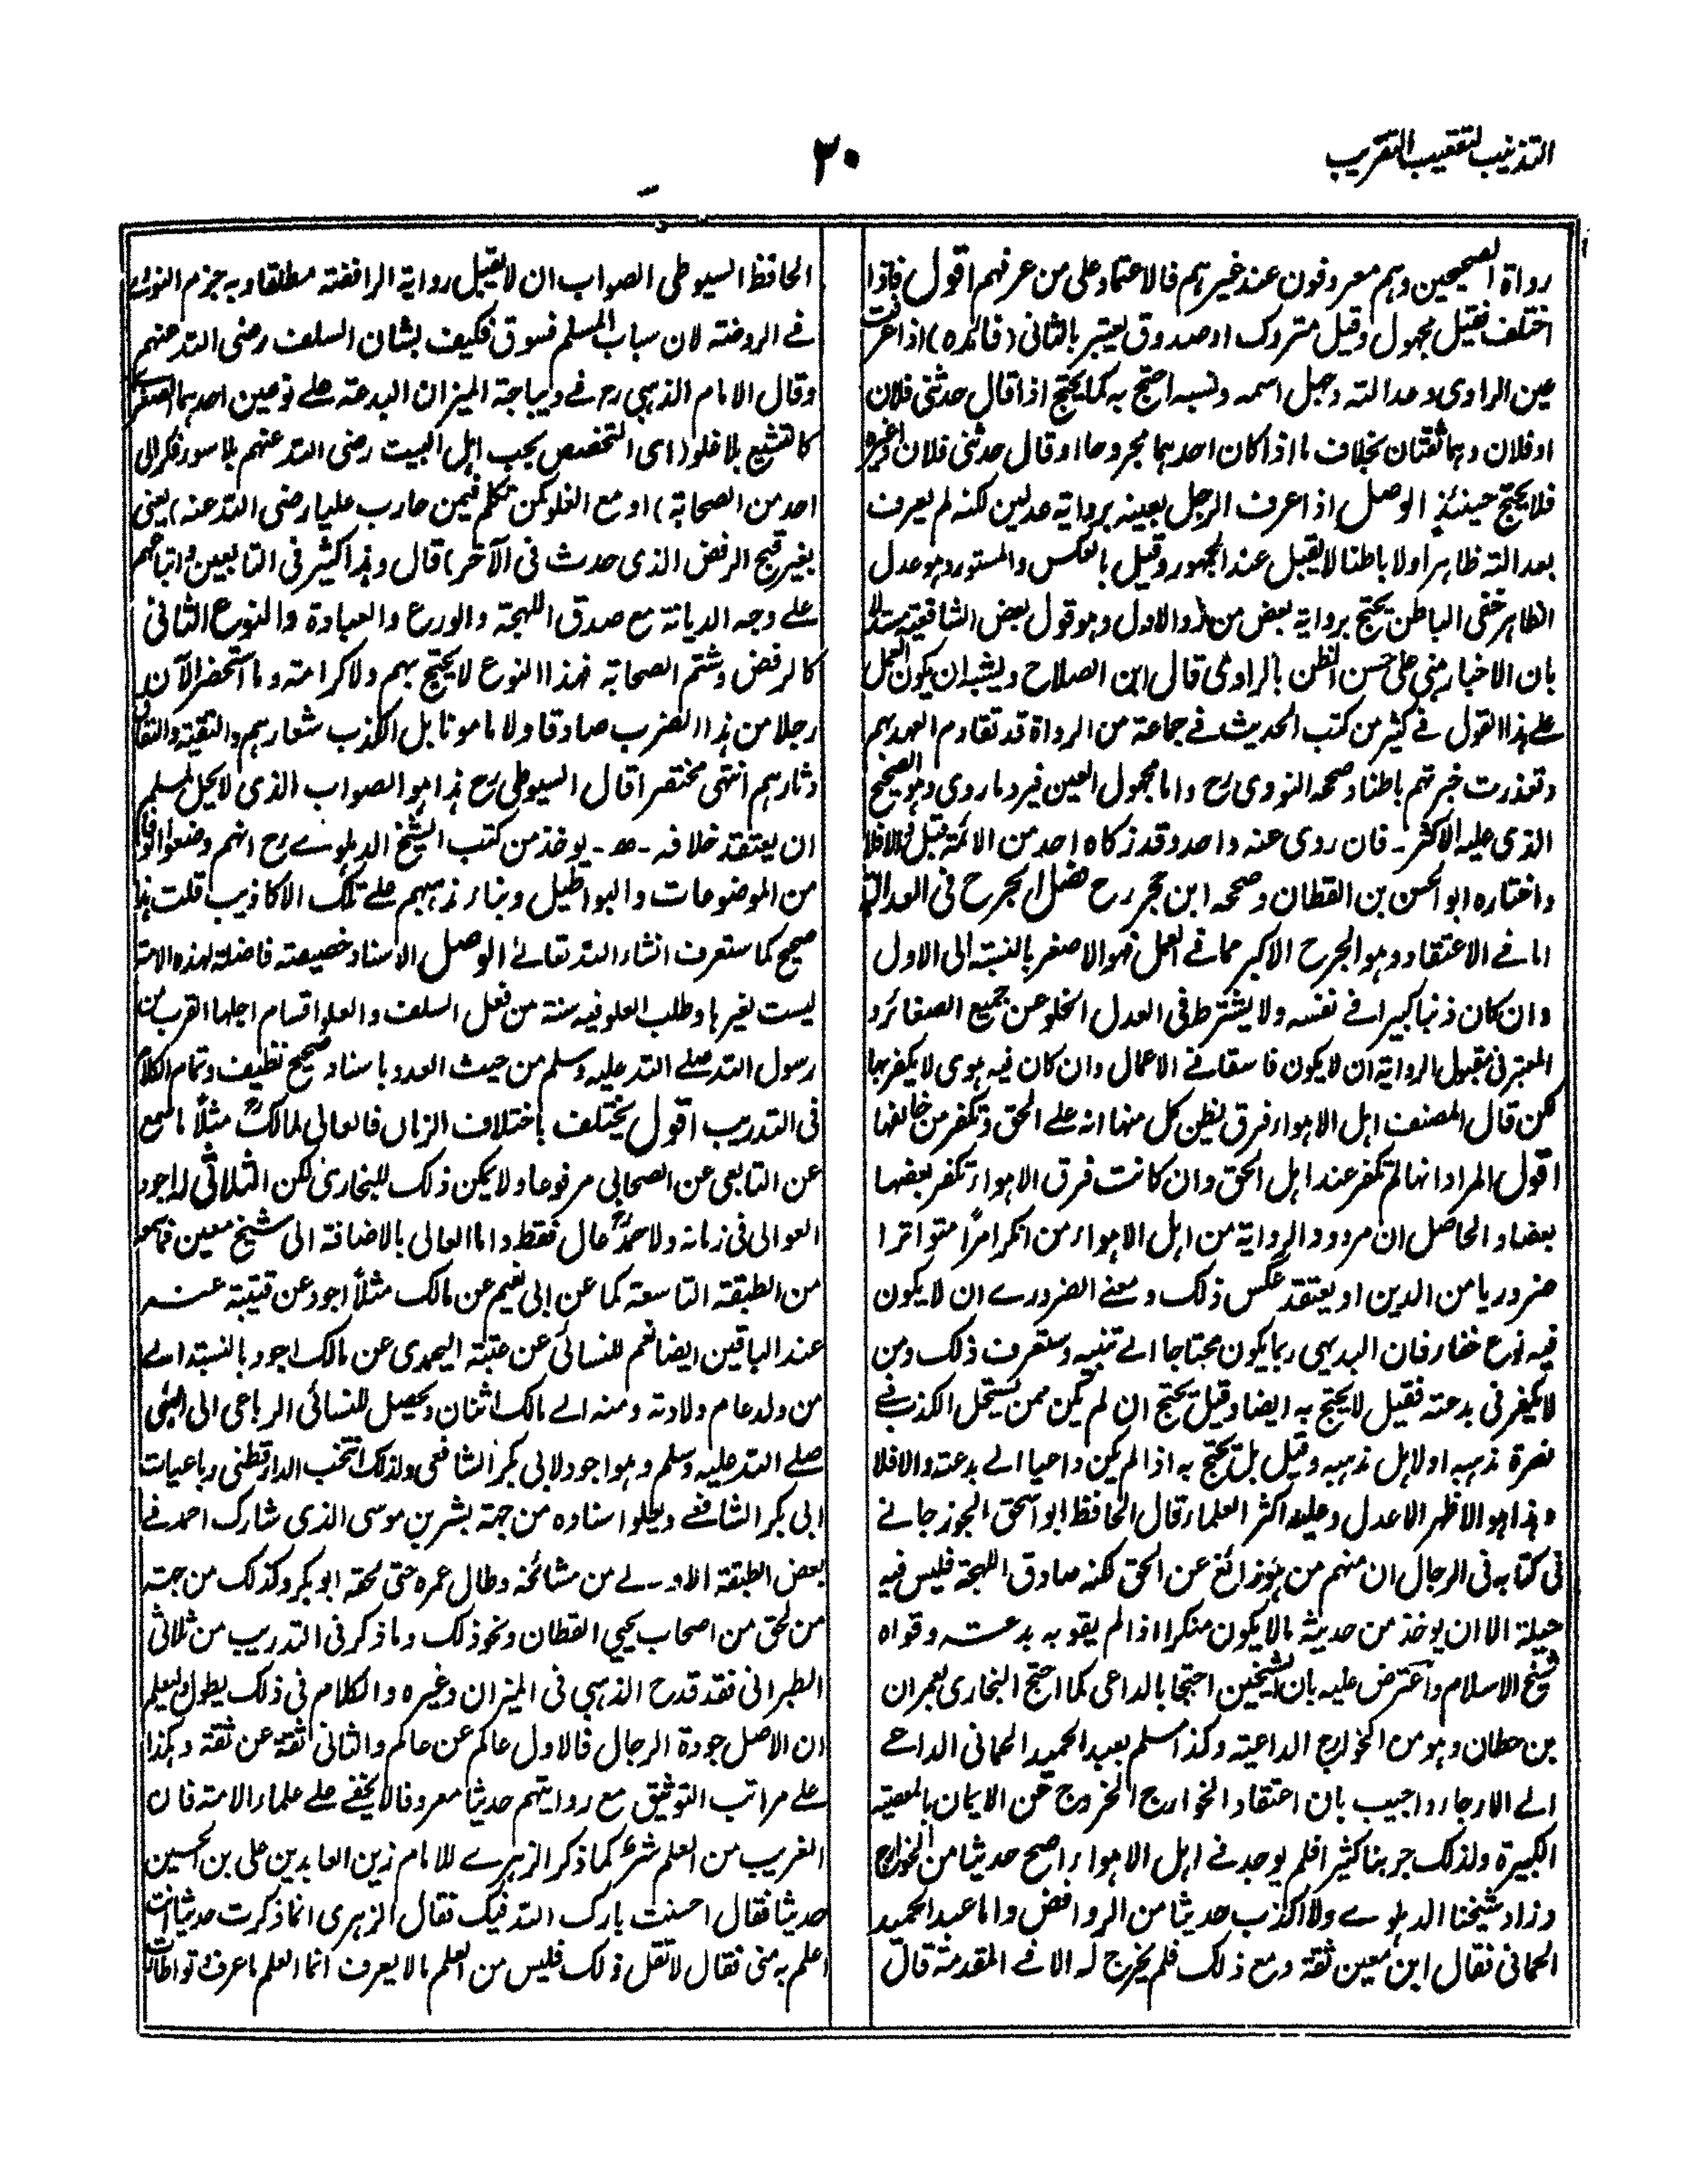 التذنيب لتعقيب التقريب
٣٠
رواة الصحيحين وہم معروفون عند غيرہم فالاعتماد على من عرفہم اقول فاذا
اختلف فقيل مجہول وقيل متروك او صدوق يعتبر بالثانى (فائدہ) اذا عرفت
عين الراوى وعدالتہ وجہل اسمہ ونسبہ احتج بہ كما يحتج اذا قال حدثنى فلان
او فلان وہما ثقتان بخلاف ما اذا كان احدہما مجروحا او قال حدثنى فلان او غيرہ
فلا يحتج حينئذ الوصل اذا عرف الرجل بعينہ برواية عدلين لكنہ لم يعرف
بعدالتہ ظاہرا ولا باطنا لا يقبل عند الجمہور وقيل بالعكس والمستور وہو عدل
الظاہر خفى الباطن يحتج برواية بعض من رد الاول وہو قول بعض الشافعية مستدلا
بان الاخبار مبنى على حسن الظن بالراوى قال ابن الصلاح ويشبہ ان يكون العمل
على ہذا القول فى كثير من كتب الحديث فى جماعة من الرواة قد تقادم العہد بہم
وتعذرت خبرتہم باطنا وصححہ النووى رح واما مجہول العين فيرد ما روى وہو الصحيح
الذى عليہ الاكثر ـ فان روى عنہ واحد وقد زكاہ احد من الائمة قبل والا فلا
واختارہ ابو الحسن بن القطان وصححہ ابن حجر رح فصل الجرح فى العدالة
اما فى الاعتقاد وہو الجرح الاكبر مما فى العمل فہو الاصغر بالنسبة الى الاول
وان كان ذنبا كبيرا فى نفسہ ولا يشترط فى العدل الخلو عن جميع الصغائر و
المعتبر فى مقبول الرواية ان لا يكون فاسقا فى الاعمال وان كان فيہ ہوى لا يكفر بہا
لكن قال المصنف اہل الاہواء فرق يظن كل منہا انہ على الحق وتكفر من خالفہا
اقول المراد انہا لم تكفر عند اہل الحق وان كانت فرق الاہواء تكفر بعضہا
بعضا والحاصل ان مردود الرواية من اہل الاہواء من انكر امرا متواترا
ضروريا من الدين او يعتقد عكس ذلك ومعنى الضرورى ان لا يكون
فيہ نوع خفاء فان البديہى ربما يكون محتاجا الى تنبيہ وستعرف ذلك ومن
لا يكفر فى بدعتہ فقيل لا يحتج بہ ايضا وقيل يحتج ان لم يكن ممن يستحل الكذب فى
نصرة مذہبہ او لاہل مذہبہ وقيل بل يحتج بہ اذا لم يكن داعيا الى بدعتہ والا فلا
وہذا ہو الاظہر الاعدل وعليہ اكثر العلماء قال الحافظ ابو اسحق الجوزجانى
فى كتابہ فى الرجال ان منہم من ہو زائغ عن الحق لكنہ صادق اللہجة فليس فيہ
حيلة الا ان يوخذ من حديثہ ما لا يكون منكرا اذا لم يقو بہ بدعتہ وقواہ
شيخ الاسلام واعترض عليہ بان الشيخين احتجا بالداعى كما احتج البخارى بعمران
بن حطان وہو من الخوارج الداعية وكذا مسلم بعبد الحميد الحمانى الداعى
الى الارجاء واجيب بان اعتقاد الخوارج الخروج عن الايمان بالمعصية
الكبيرة ولذلك جربنا كثيرا فلم يوجد فى اہل الاہواء اصح حديثا من الخوارج
وزاد شيخنا الدہلوى ولا اكذب حديثا من الروافض واما عبد الحميد
الحمانى فقال ابن معين ثقة ومع ذلك فلم يخرج لہ الا فى المقدمة قال
الحافظ السيوطى الصواب ان لا يقبل رواية الرافضة مطلقا وبہ جزم النووى
فى الروضة لان سباب المسلم فسوق فكيف بشان السلف رضى اللہ عنہم
وقال الامام الذہبى رح فى ديباجة الميزان البدعة على نوعين احدہما الصغرى
كالتشيع بلا غلو (اى التخصص بحب اہل البيت رضى اللہ عنہم بلا سوء ذكر الى
احد من الصحابة) او مع الغلو كمن تكلم فيمن حارب عليا رضى اللہ عنہ (يعنى
بغير قبح الرفض الذى حدث فى الآخر) قال وہذا كثير فى التابعين واتباعہم
على وجہ الديانة مع صدق اللہجة والورع والعبادة والنوع الثانى
كالرفض وشتم الصحابة فہذا النوع لا يحتج بہم ولا كرامة وما استحضر الآن
رجلا من ہذا الضرب صادقا ولا مامونا بل الكذب شعارہم والتقية والنفاق
دثارہم انتہى مختصرا قال السيوطى رح ہذا ہو الصواب الذى لا يحل لمسلم
ان يعتقد خلافہ ـ ھ ـ يوخذ من كتب الشيخ الدہلوى رح انہم وضعوا الوفا
من الموضوعات والبواطيل وبناء مذہبہم على تلك الاكاذيب قلت ہذا
صحيح كما ستعرف انشاء اللہ تعالى الوصل الاسناد خصيصة فاضلة لہذہ الامة
ليست لغيرہا وطلب العلو فيہ سنة من فعل السلف والعلو اقسام اجلہا القرب من
رسول اللہ صلى اللہ عليہ وسلم من حيث العدد باسناد صحيح نظيف وتمام الكلام
فى التدريب اقول يختلف باختلاف الزمان فالعالى لمالك مثلا ما سمع
عن التابعى عن الصحابى مرفوعا ولا يمكن ذلك للبخارى لكن الثلاثى لہ اجود
العوالى فى زمانہ ولاحمد عال فقط واما العالى بالاضافة الى شيخ معين
من الطبقة التاسعة كما عن ابى نعيم عن مالك مثلا اجود عن قتيبة عنہ
عند الباقين ايضا نعم للنسائى عن عتبة اليحمدى عن مالك اجود بالنسبة الى
من ولد عام ولادتہ ومنہ الى مالك اثنان ويحصل للنسائى الرباعى الى النبى
صلى اللہ عليہ وسلم وہو اجود لابى بكر الشافعى ولذلك انتخب الدارقطنى رباعيات
ابى بكر الشافعى ويعلو اسنادہ من جہة بشر بن موسى الذى شارك احمد فى
بعض الطبقة الاولى من مشائخہ وطال عمرہ حتى لحقہ ابو بكر وكذلك من جہة
من لحق من اصحاب يحيى القطان ونحو ذلك وما ذكر فى التدريب من ثلاثى
الطبرانى فقد قدح الذہبى فى الميزان وغيرہ والكلام فى ذلك يطول وليعلم
ان الاصل جودة الرجال فالاول عالم عن عالم والثانى ثقة عن ثقة وہكذا
على مراتب التوثيق مع روايتہم حديثا معروفا لا يخفى على علماء الامة فان
الغريب من العلم شر كما ذكر الزہرى للامام زين العابدين على بن الحسين
حديثا فقال احسنت بارك اللہ فيك فقال الزہرى انما ذكرت حديثا انت
اعلم بہ منى فقال لا تقل ذلك فليس من العلم ما لا يعرف انما العلم ما عرف وتواطأت